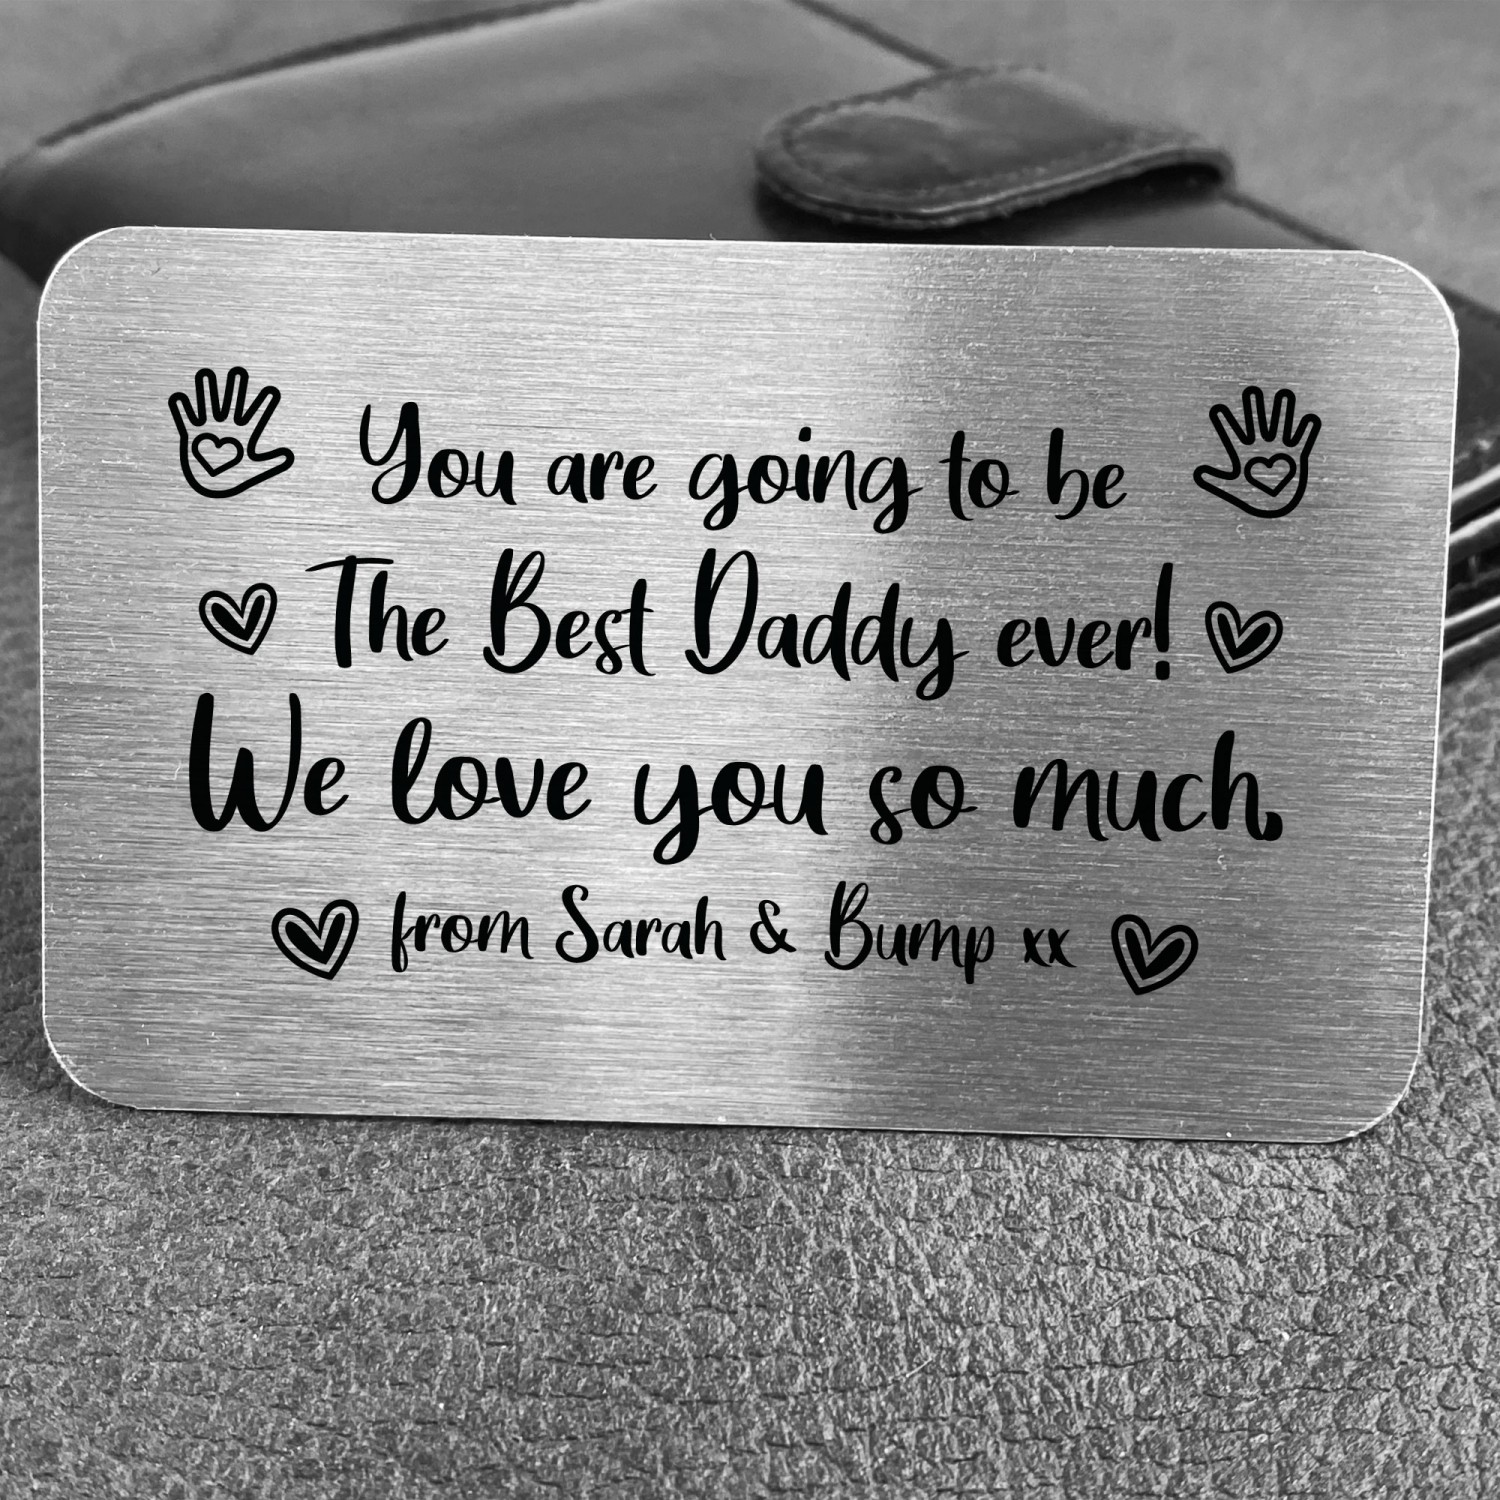 You are going to be
The Best Daddy ever!
We love you so much.
from Sarah & Bump xx